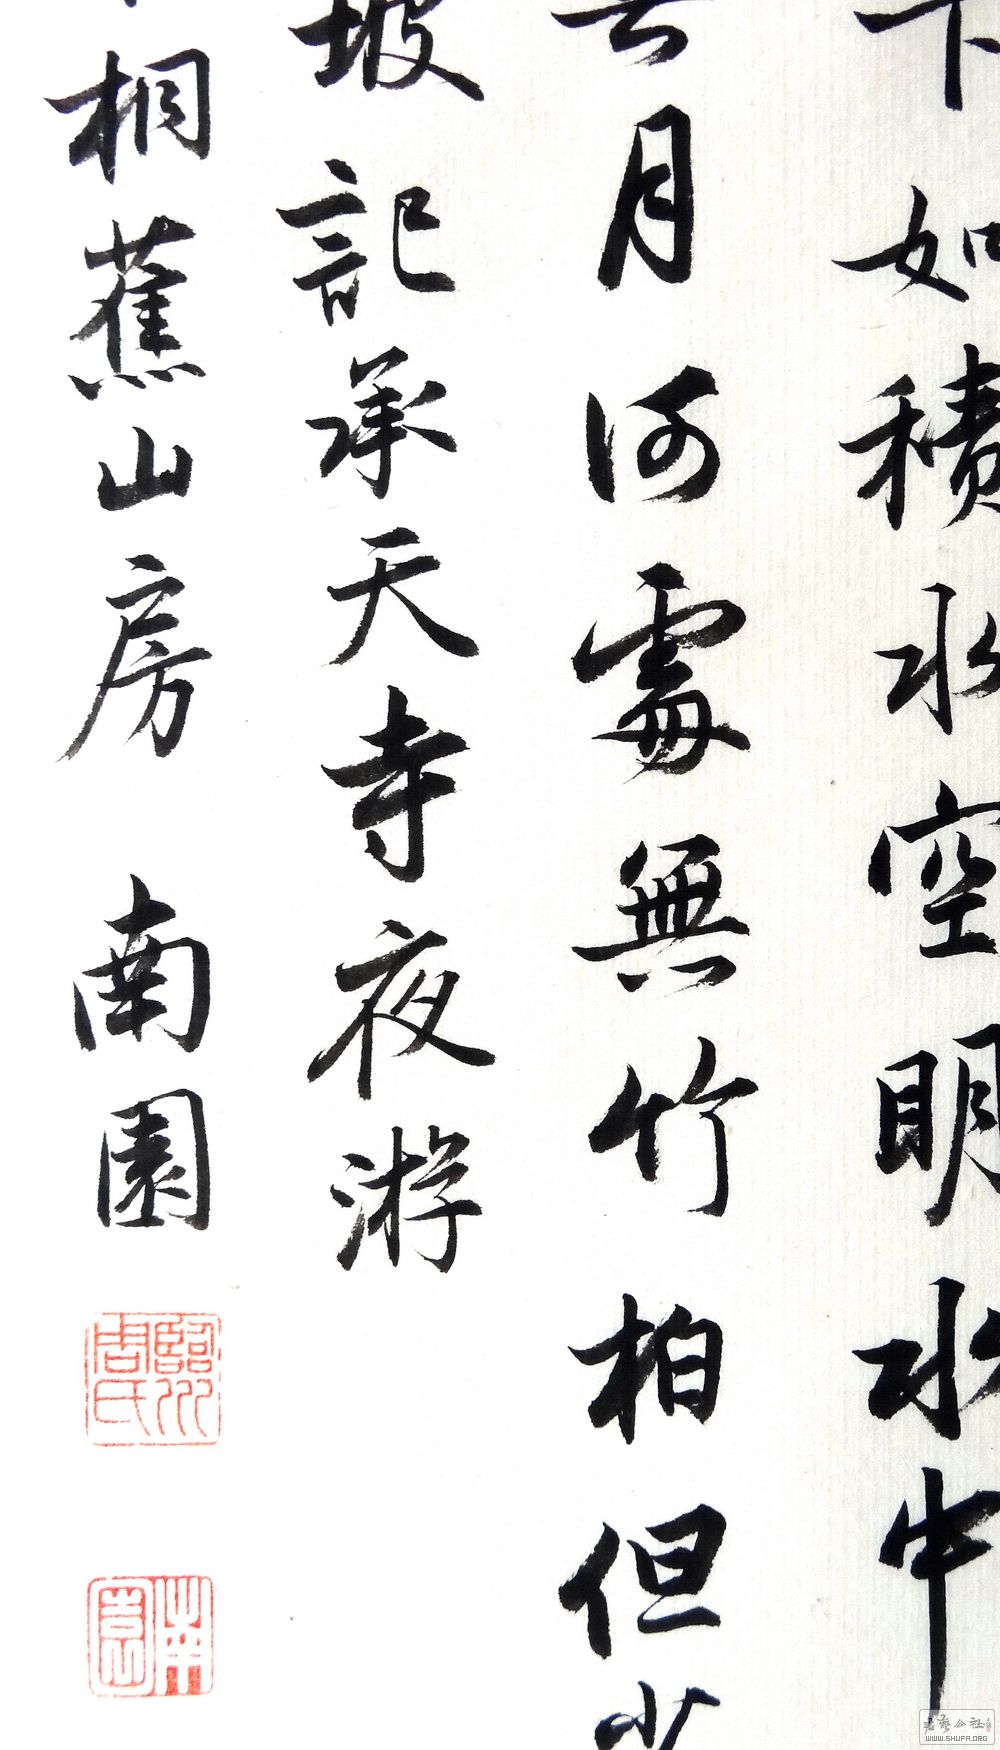 下如積水空明水中
月何處無竹柏但少
坡記承天寺夜游
桐蕉山房 南園
臨川周氏
南園
書藝公社
WWW.SHUFA.ORG